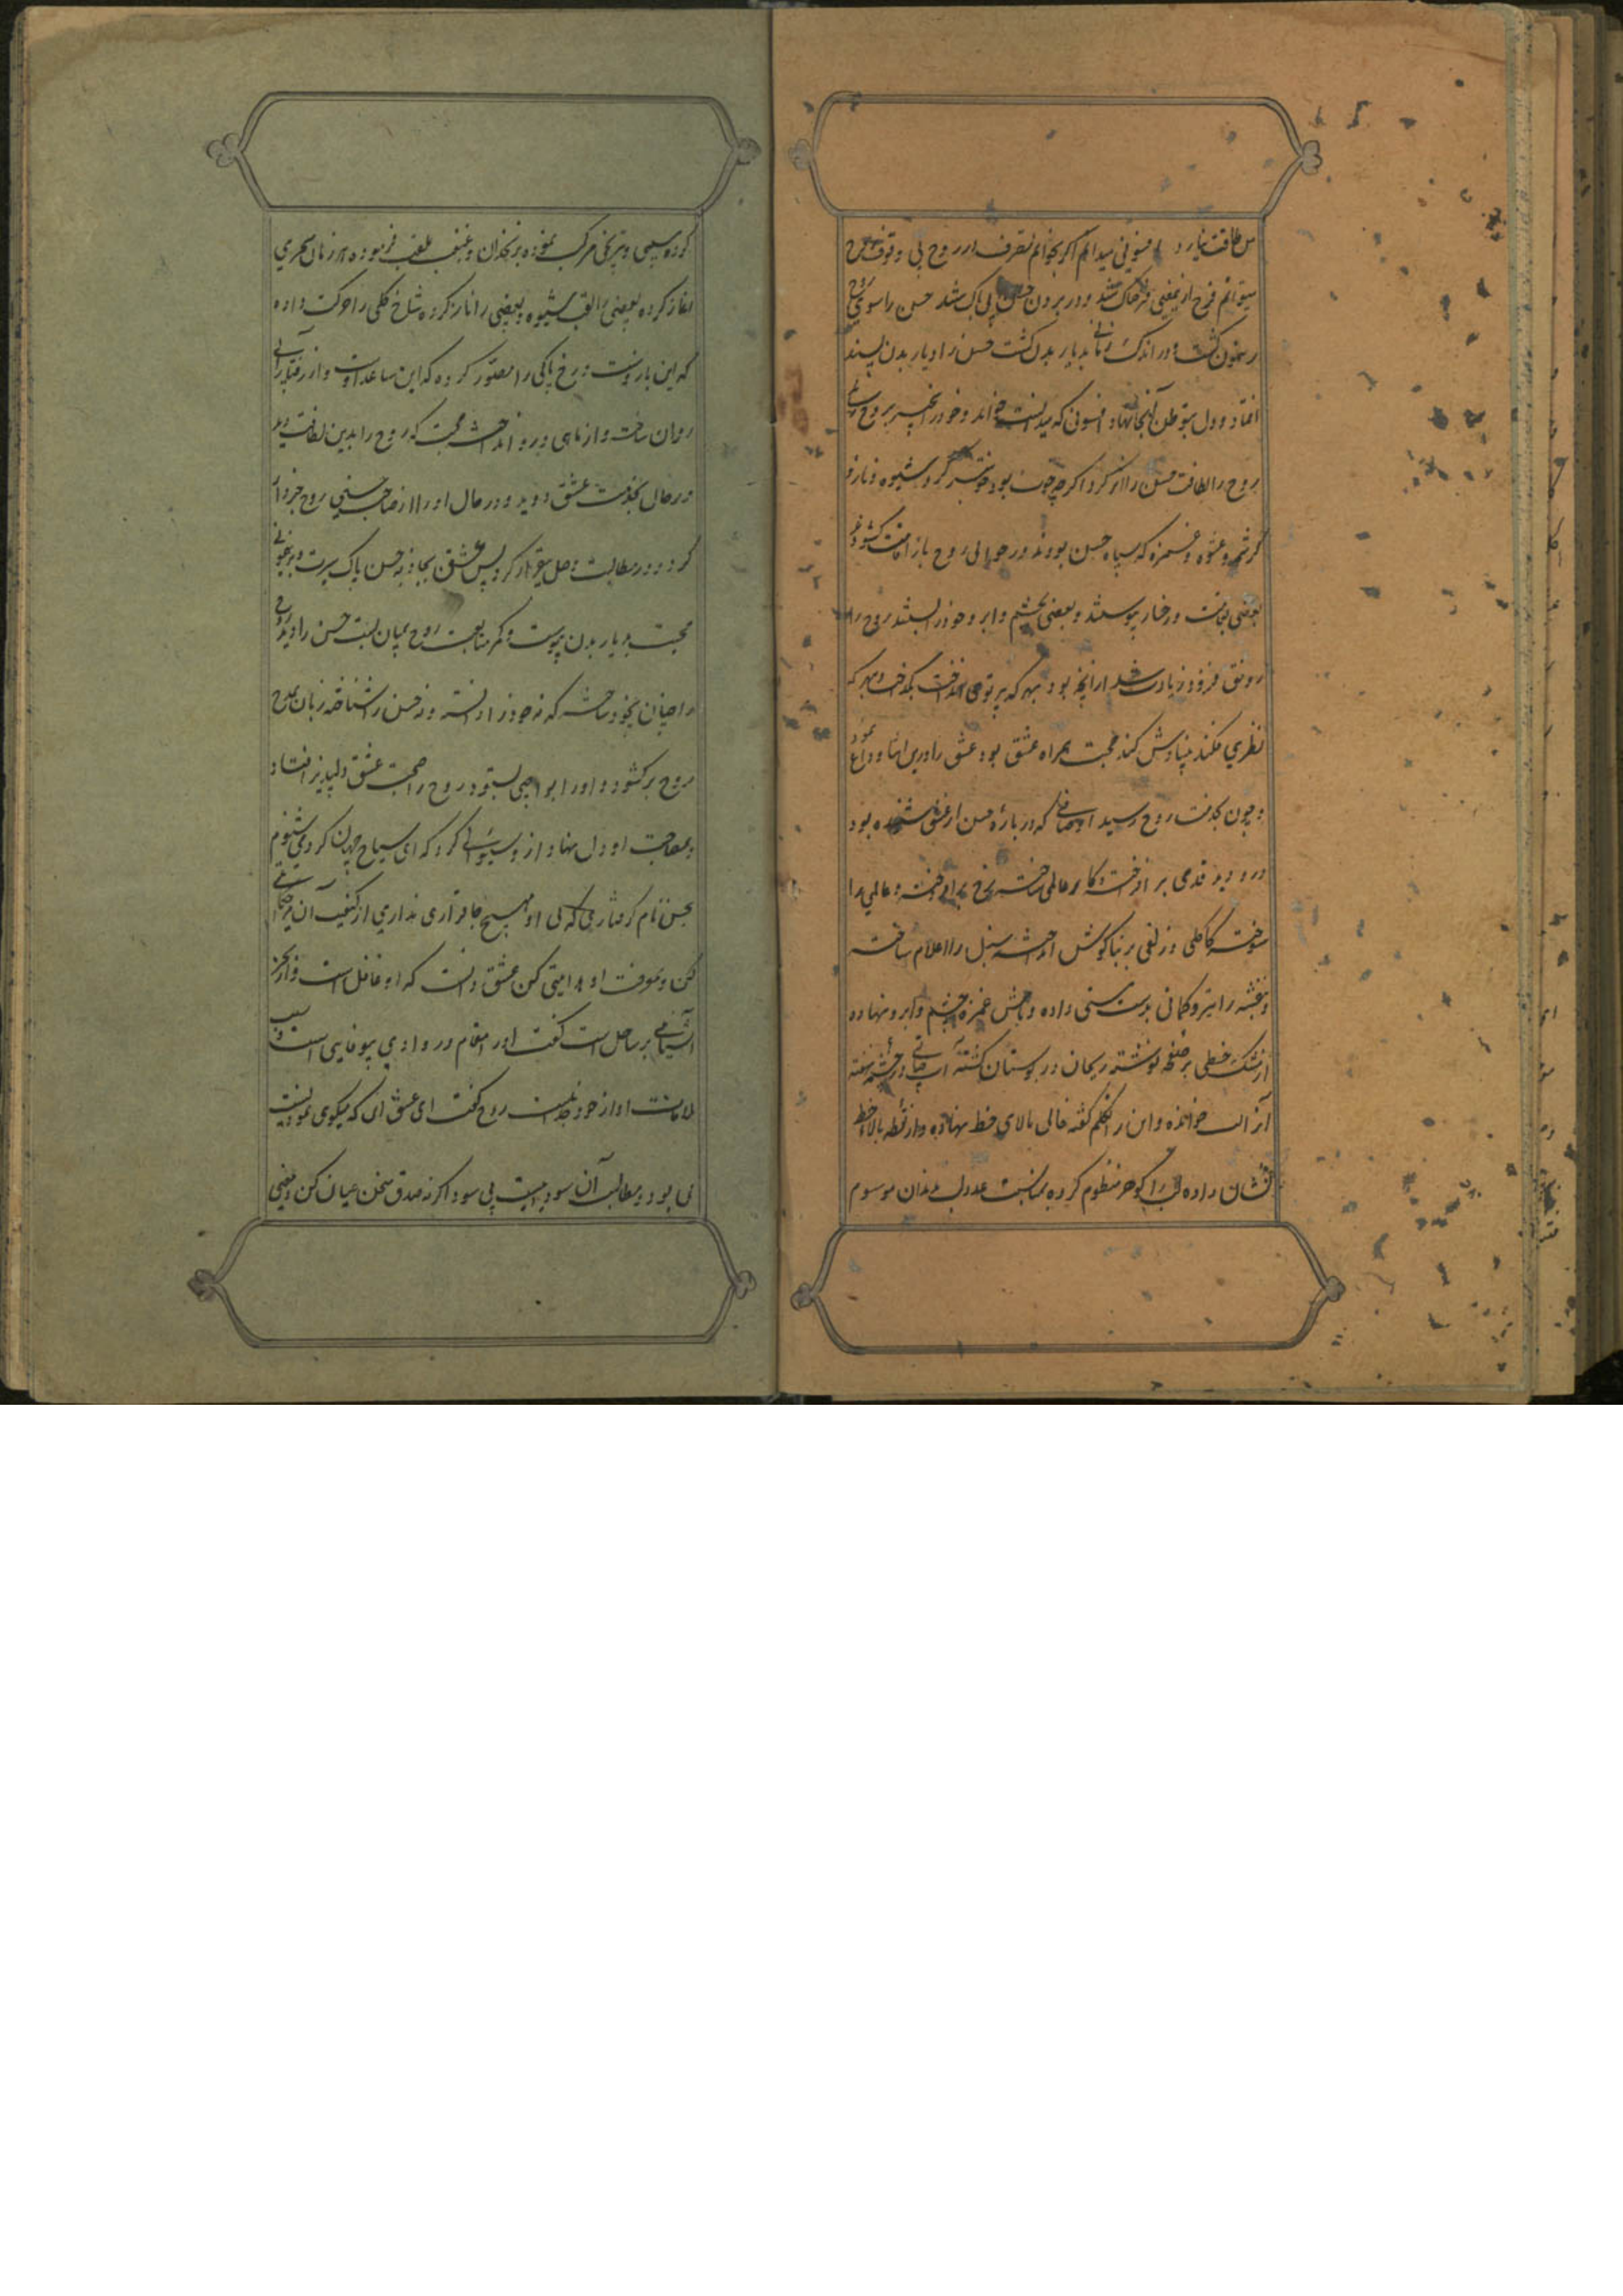 من طاقت نیارد افسونی میدانم اگر بخوانم تصرف در روح بی وقوف روح
میتوانم فرح از معنی فرحناک شد و در بردن حسن بی باک شد حسن را سوی روح
رهنمون گشت و در اندک زمانی بدیار بدن گشت حسن را دیار بدن پسند
افتاد و دل بتوطن آنجا نهاد افسونی که میدانست خواند و خود را بخیر بروح
روح را لطافت حسن را اثر کرد اگرچه خوب بود خوبتر کرد شیوه و ناز و
کرشمه و عشوه و غمزه که سپاه حسن بودند در حوالی روح باز اقامت کشودند
بعضی بقامت و رخسار پیوستند و بعضی بچشم و ابرو خود را بستند روح را
رونق فزود زیادت شد از آنچه بود بهر که پرتوی انداخت بگداخت و بهر که
نظری فکند محبت همراه عشق بود عشق را درین اثنا وداع نمود
و چون بخدمت روح رسید اوصافی که در باره حسن از عشق شنیده بود
درو دید قدمی بر افراخته و کار عالمی ساخته رخ بر افروخته و عالمی را
سوخته کاکلی و زلفی بر بناگوش انداخته سنبل را اعلام ساخته
و بنفشه را تیر و کمانی بدست مستی داده و نامش غمزه چشم و ابرو نهاده
از مشک خطی بر صفحه نوشته ریحان در بوستان کشته آب حیاتی در چشمه نهفته
آنرا لب خوانده و این را تکلم گفته خالی بالای خط نهاده و از نقطه بالا خط
نشان داده لب را گوهر منظوم کرده بمناسبت عدد لب بدندان موسوم
گوی سیمی و ترنجی مرکب نموده بزنخدان و غبغب ملقب فرموده هر زمان سحری
آغاز کرده بعضی را لقب شیوه و بعضی را ناز کرده شاخ گلی را حرکت داده
که این بازوست و رخ پاکی را مصور کرده که این ساعد اوست و از رفتار آبی
روان ساخته و از ماهی درو انداخته محبت که روح را بدین لطافت دید
در حال بخدمت عشق دوید و در حال او را از صاحب حسنی روح خبردار
کرد و در مطالبت وصل بیقرار کرد پس عشق بجاذبه حسن پاک سرت و برهنمونی
محبت بدیار بدن پیوست و کمر متابعت روح بمیان بست حسن را دید روح
را چنان بیخود ساخته که نه خود را دانسته و نه حسن را شناخته زبان بمدح
روح برکشود و او را بواجبی بستود روح را صحبت عشق دلپذیر افتاد
بمصاحبت او دل نهاد و از وی سوالی کرد که ای سیاح جهان گرد می شنوم
بحسن نام گرفتاری که بی او هیچ جا قراری نداری از کیفیت آن مرا حکایتی
کن و بمعرفت او هدایتی کن عشق دانست که او غافل است و از بحر
آشنایی بر ساحل است گفت او را مقام در وادی بیوفایی است و سبب
ملاقات او از خود جدایی است روح گفت ای عشق این که میگوی نمودیست
بی بود و مطالب آن سودیست بی سود اگر نه صدق سخن عیان کن و معنی